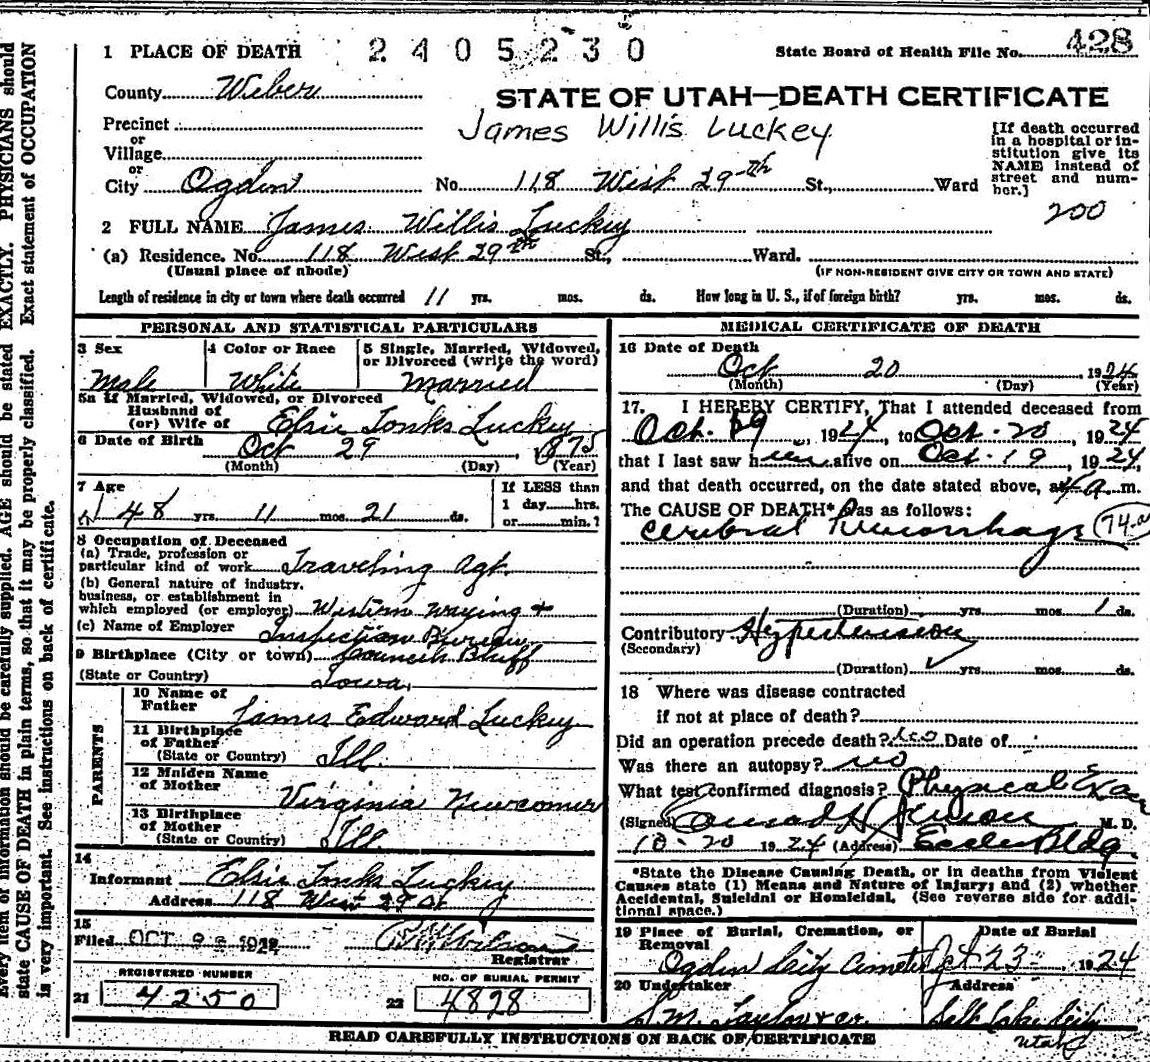 1 PLACE OF DEATH 2405230 State Board of Health File No. 428
County Weber
STATE OF UTAH—DEATH CERTIFICATE
Precinct
James Willis Luckey
or
Village
or
City Ogden No. 118 West 29th St., Ward
[If death occurred
in a hospital or in-
stitution give its
NAME instead of
street and num-
ber.]
200
2 FULL NAME James Willis Luckey
(a) Residence. No. 118 West 29th St., Ward.
(Usual place of abode) (IF NON-RESIDENT GIVE CITY OR TOWN AND STATE)
Length of residence in city or town where death occurred 11 yrs. mos. ds. How long in U. S., if of foreign birth? yrs. mos. ds.
PERSONAL AND STATISTICAL PARTICULARS
3 Sex
Male
4 Color or Race
White
5 Single, Married, Widowed,
or Divorced (write the word)
Married
5a If Married, Widowed, or Divorced
Husband of
(or) Wife of Elsie Tonks Luckey
6 Date of Birth Oct 29, 1875
(Month) (Day) (Year)
7 Age
48 yrs. 11 mos. 21 ds.
If LESS than
1 day hrs.
or min.?
8 Occupation of Deceased
(a) Trade, profession or
particular kind of work Traveling Agt.
(b) General nature of industry,
business, or establishment in
which employed (or employer) Western Waying +
(c) Name of Employer Inspection Bureau
9 Birthplace (City or town) Council Bluff
(State or Country) Iowa
PARENTS
10 Name of
Father James Edward Luckey
11 Birthplace
of Father
(State or Country) Ill.
12 Maiden Name
of Mother Virginia Newcomer
13 Birthplace
of Mother
(State or Country) Ill.
14
Informant Elsie Tonks Luckey
Address 118 West 29 St
15
Filed OCT 1924
Registrar
REGISTERED NUMBER
21 4250
NO. OF BURIAL PERMIT
22 4828
MEDICAL CERTIFICATE OF DEATH
16 Date of Death
Oct 20 1924
(Month) (Day) (Year)
17. I HEREBY CERTIFY, That I attended deceased from
Oct. 19, 1924, to Oct. 20, 1924
that I last saw h alive on Oct. 19, 1924,
and that death occurred, on the date stated above, at 4 a m.
The CAUSE OF DEATH* was as follows:
Cerebral Hemorrhage 74-a
(Duration) yrs. mos. 1 ds.
Contributory Hypertension
(Secondary)
(Duration) yrs. mos. ds.
18 Where was disease contracted
if not at place of death?
Did an operation precede death? no Date of
Was there an autopsy? no
What test confirmed diagnosis? Physical Exam
(Signed) Jenson M. D.
10-20 1924 (Address) Eccles Bldg.
*State the Disease Causing Death, or in deaths from Violent
Causes state (1) Means and Nature of Injury; and (2) whether
Accidental, Suicidal or Homicidal. (See reverse side for addi-
tional space.)
19 Place of Burial, Cremation, or
Removal
Ogden City Cemetery
Date of Burial
Oct 23 1924
20 Undertaker
S.M. Taylor
Address
Salt Lake City
Utah
READ CAREFULLY INSTRUCTIONS ON BACK OF CERTIFICATE
Every item of information should be carefully supplied. AGE should be stated EXACTLY. PHYSICIANS should
state CAUSE OF DEATH in plain terms, so that it may be properly classified. Exact statement of OCCUPATION
is very important. See instructions on back of certificate.